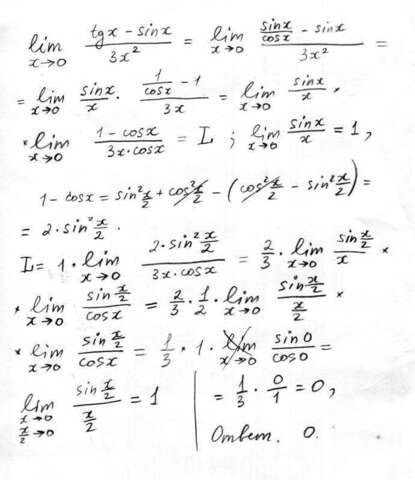 lim x→0 (tgx - sinx)/(3x²) = lim x→0 (sinx/cosx - sinx)/(3x²) =
= lim x→0 sinx/x · (1/cosx - 1)/(3x) = lim x→0 sinx/x ·
× lim x→0 (1 - cosx)/(3x·cosx) = L ; lim x→0 sinx/x = 1,
1 - cosx = sin² x/2 + cos² x/2 - (cos² x/2 - sin² x/2) =
= 2·sin² x/2 .
L = 1 · lim x→0 (2·sin² x/2)/(3x·cosx) = 2/3 · lim x→0 (sin x/2)/x ×
× lim x→0 (sin x/2)/cosx = 2/3 · 1/2 · lim x→0 (sin x/2)/(x/2) ×
× lim x→0 (sin x/2)/cosx = 1/3 · 1 · lim x→0 sin0/cos0 =
lim x→0 x/2→0 (sin x/2)/(x/2) = 1
= 1/3 · 0/1 = 0,
Ответ. 0.